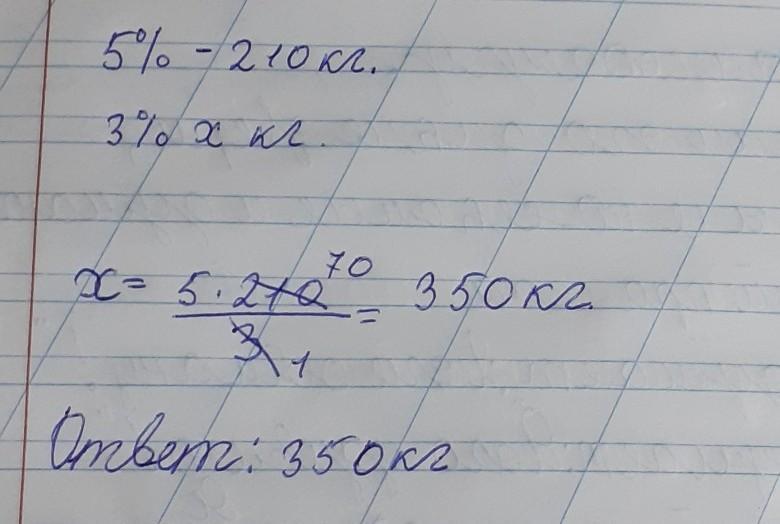 5% - 210 кг.
3% x кг.
x = 5 · 210 70 / 3 1 = 350 кг.
Ответ: 350 кг